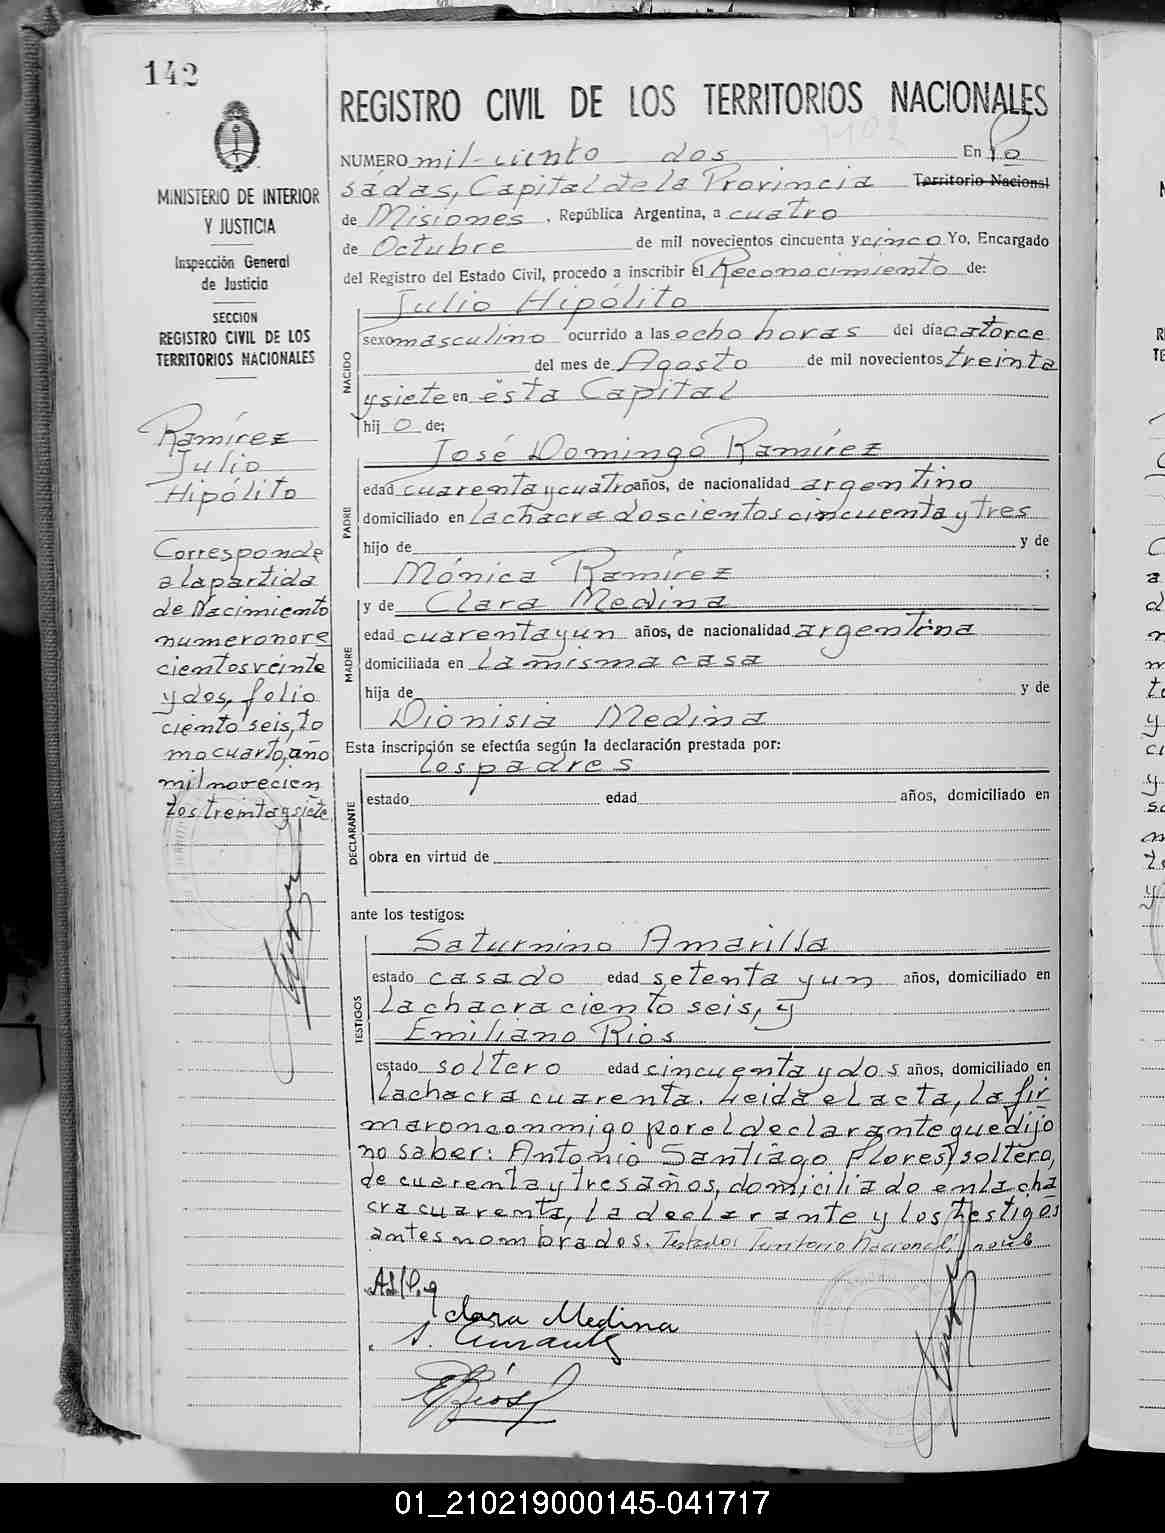 142
MINISTERIO DE INTERIOR
Y JUSTICIA
Inspección General
de Justicia
SECCION
REGISTRO CIVIL DE LOS
TERRITORIOS NACIONALES
Ramírez
Julio
Hipólito
Corresponde
a la partida
de Nacimiento
numero nove
cientos veinte
y dos, folio
ciento seis, to
mo cuarto, año
mil novecien
tos treinta y siete
REGISTRO CIVIL DE LOS TERRITORIOS NACIONALES
NUMERO mil-ciento dos En Po
sadas, Capital de la Provincia Territorio Nacional
de Misiones, República Argentina, a cuatro
de Octubre de mil novecientos cincuenta y cinco Yo, Encargado
del Registro del Estado Civil, procedo a inscribir el Reconocimiento de:
Julio Hipólito
NACIDO
sexo masculino ocurrido a las ocho horas del día catorce
del mes de Agosto de mil novecientos treinta
y siete en esta Capital
hij o de;
José Domingo Ramírez
PADRE
edad cuarenta y cuatro años, de nacionalidad argentino
domiciliado en la chacra doscientos cincuenta y tres
hijo de y de
Mónica Ramírez ;
y de Clara Medina
MADRE
edad cuarenta y un años, de nacionalidad argentina
domiciliada en la misma casa
hija de y de
Dionisia Medina
Esta inscripción se efectúa según la declaración prestada por:
los padres
DECLARANTE
estado edad años, domiciliado en
obra en virtud de
ante los testigos:
Saturnino Amarilla
TESTIGOS
estado casado edad setenta y un años, domiciliado en
la chacra ciento seis, y
Emiliano Rios
estado soltero edad cincuenta y dos años, domiciliado en
la chacra cuarenta. Leida el acta, la fir
maron conmigo por el declarante que dijo
no saber: Antonio Santiago Flores, soltero,
de cuarenta y tres años, domiciliado en la cha
cra cuarenta, la declarante y los testigos
antes nombrados. Testado: Territorio Nacional,
Clara Medina
E Rios
01_210219000145-041717